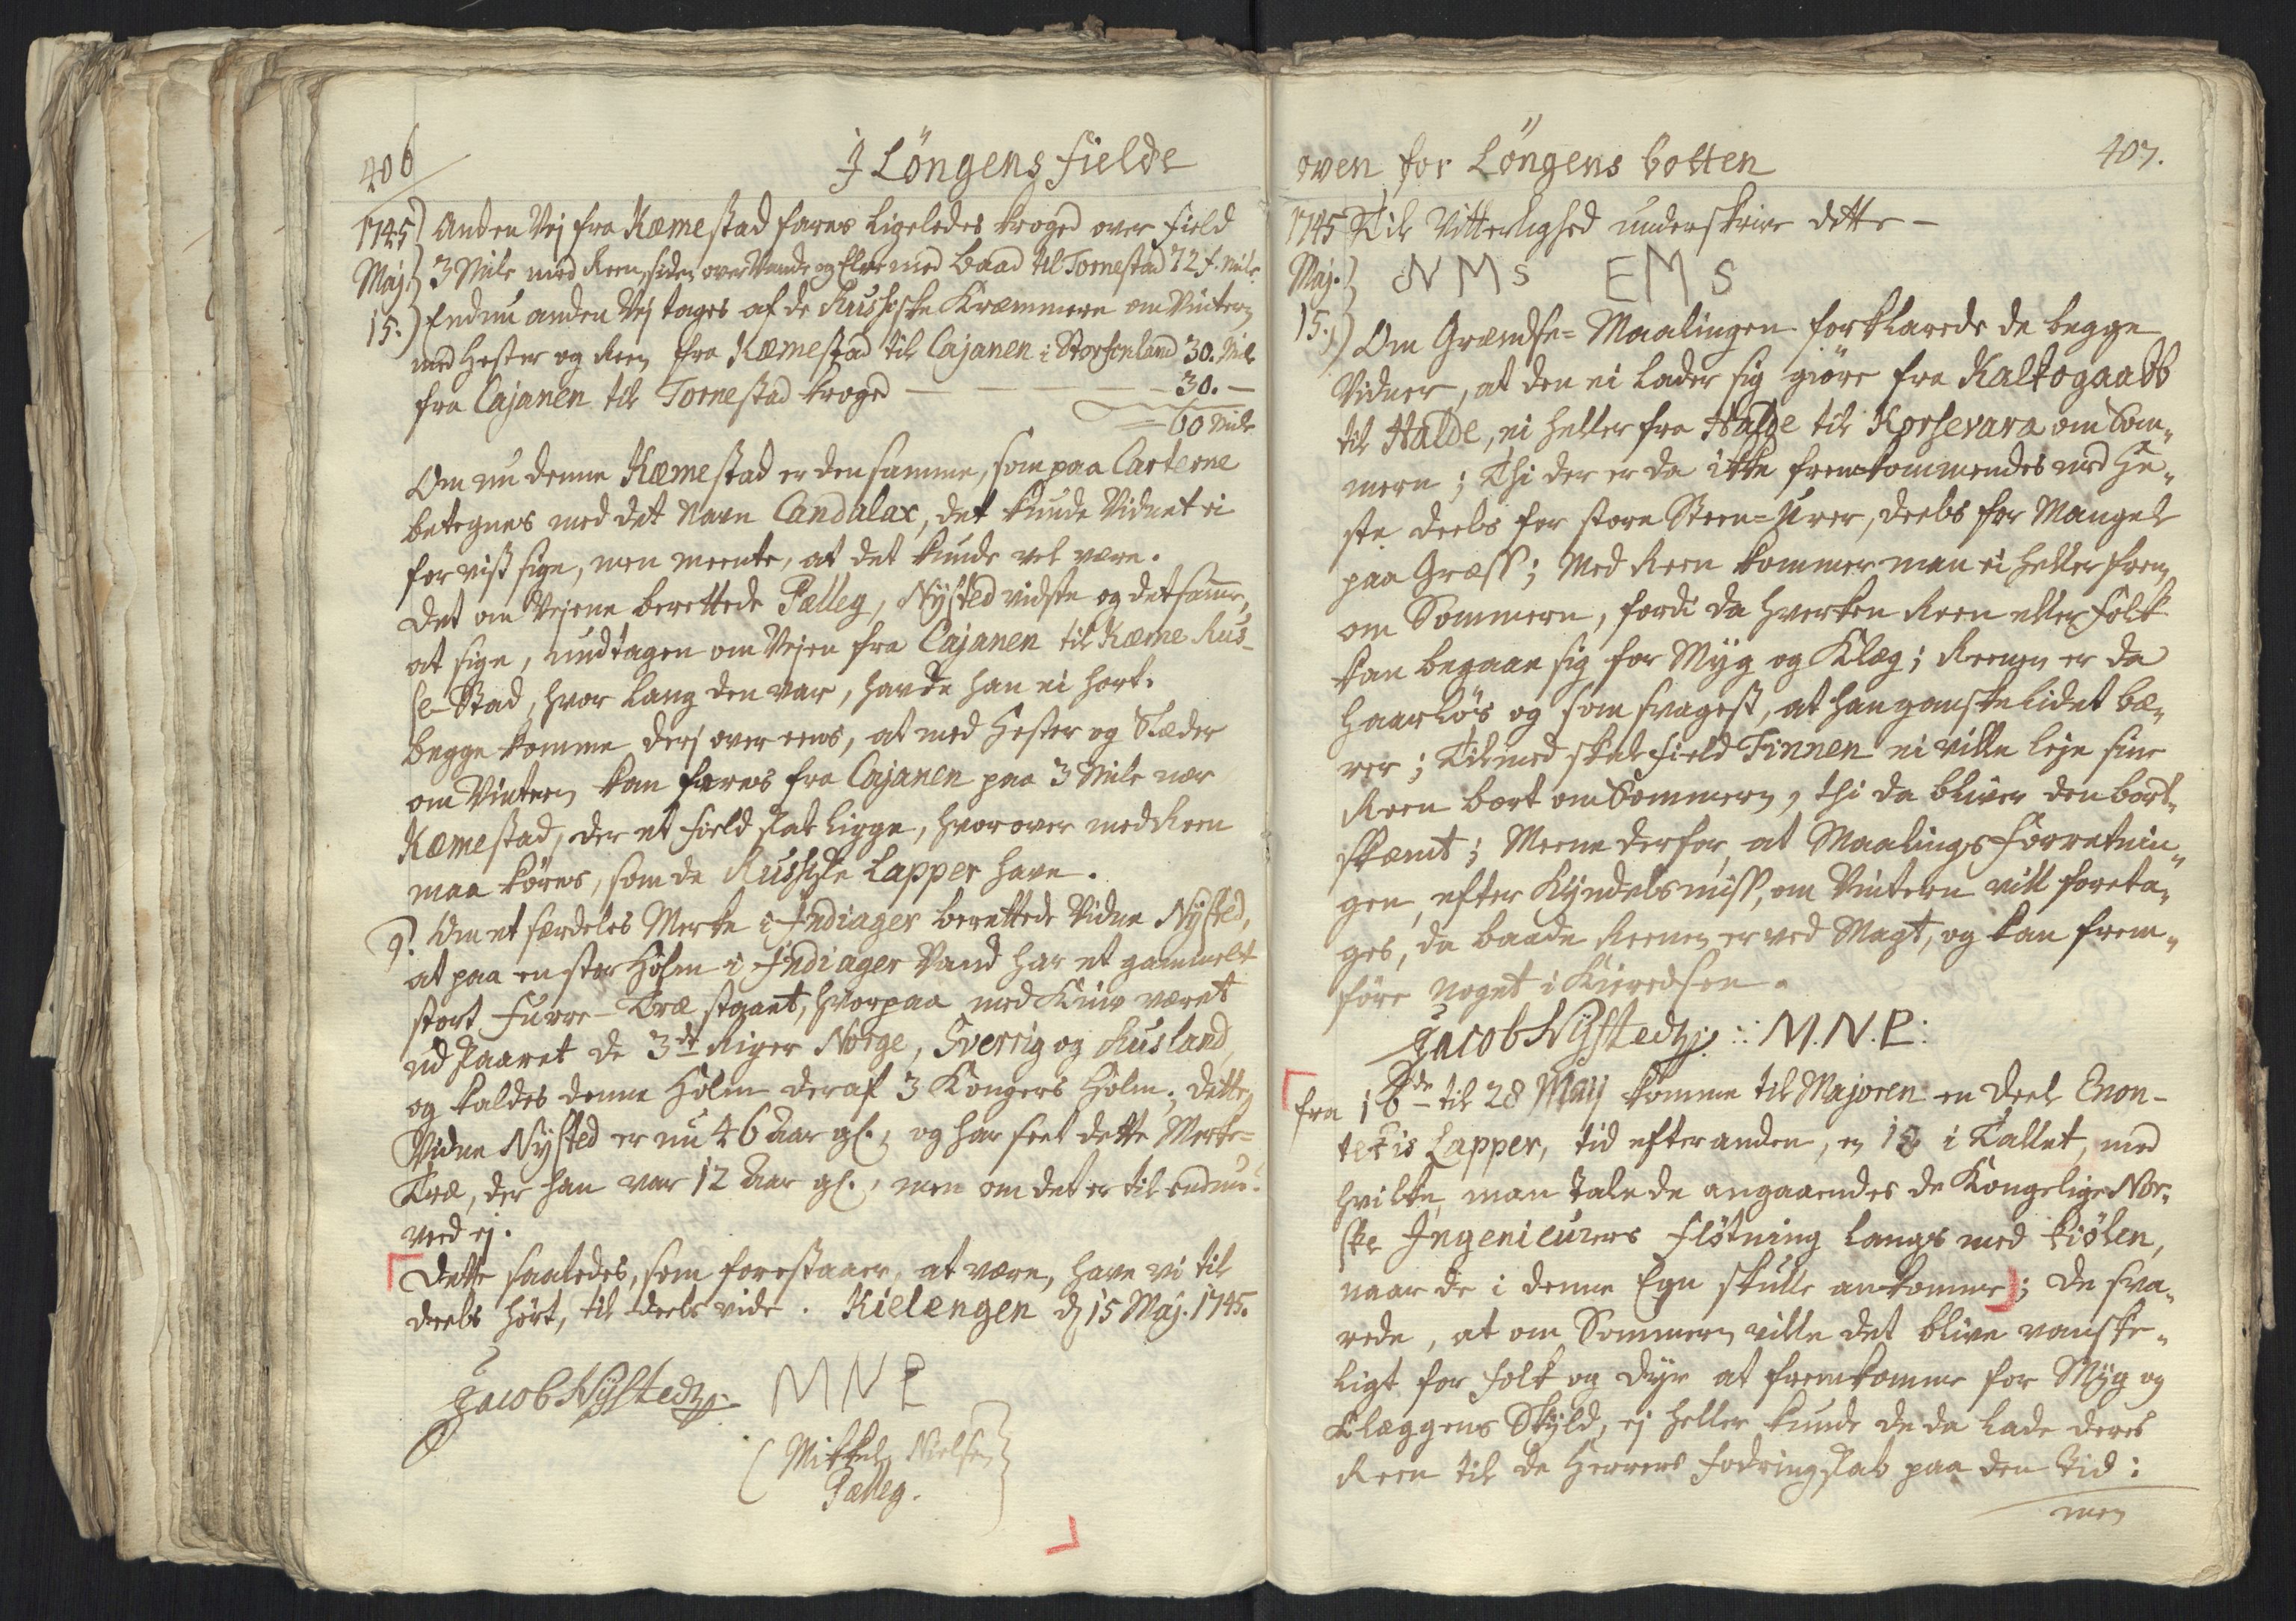 406
I Löngens Fielde
1745) Anden Vej fra Kæmestad fares ligeledes kroged over Field
Maj. 3 Mile med Reen, siden over Vande og Elve med Baad til Tornestad 72 f. Mile
15. Endnu anden Vej tages af de Russiske Kræmmere om Vintern
med Hester og Reen fra Kæmestad til Cajanen i Storfinland 30. Mile
fra Cajanen til Tornestad kroged — 30. —
60 Mile
Om nu denne Kæmestad er den samme, som paa Carterne
betegnes med det Navn Candalax, det kunde Vidnet ei
for vist sige, men meente, at det kunde vel være.
Det om Vejene berettede Pælleg, Nysted vidste og det samme,
at sige, undtagen om Vejen fra Cajanen til Kæme Rus-
se-Stad, hvor lang den var, havde han ei hört.
begge komme deri over eens, at med Hester og Slæder
om Vintern kan fares fra Cajanen paa 3 Mile nær
Kæmestad, der et Field skal ligge, hvorover med Reen
maa köres, som de Russiske Lapper have.
9. Om et særdeles Merke i Indiager berettede Vidne Nysted,
at paa en stor Holm i Indiager Vand har et gammelt
stort Furre-Træ staaet, hvorpaa med Kniv været
udskaaret de 3de Riger Norge, Sverrig og Rusland
og kaldes denne Holm deraf 3 Kongers Holm; dette
Vidne Nysted er nu 46 Aar gl., og har seet dette Merke-
Træ, der han var 12 Aar gl., men om det er til endnu?
veed ej.
Dette saaledes, som forestaaer, at være, have vi til
deels hört, til deels vide. Kielængen d. 15 Maj. 1745.
Jacob Nysted M N P
(Mikkel Nielsen
Pælleg.)
oven for Löngens botten
407.
1745 Til Vitterlighed underskrive dette —
Maj. N M S E M S
15. Om Grændse-Maalingen forklarede de begge
Vidner, at den ei lader sig giöre fra Kaltogaabb
til Halde, ei heller fra Halde til Korsevara om Som-
mern; Thi der er da ikke fremkommendes med He-
ste deels for store Steen-Urer, deels for Mangel
paa Græss; Med Reen kommer man ei heller frem
om Sommern, fordi da hverken Reen eller Folk
kan begaae sig for Myg og Klæg; Reenen er da
haarlös og som svagest, at han ganske lidet bæ-
rer; Tilmed skal Field Finnen ei ville leje sine
Reen bort om Sommern, thi da bliver den bort-
skæmt; Meene derfor, at Maalings Forretnin-
gen, efter Kyndelsmiss, om Vintern vill foreta-
ges, da baade Reenen er ved Magt, og kan frem-
före noget i Kieredsen.
Jacob Nysted :: M.N.P:
fra 18de til 28 Maij komme til Majoren en Deel Enon-
tekis Lapper, tid efter anden, en 18 i Tallet, med
hvilke man talede angaaendes de Kongelige Nor-
ske Ingenieurers Flötning langs med kiölen,
naar de i denne Egn skulle ankomme; De sva-
rede, at om Sommern ville det blive vanske-
ligt for Folk og Dyr at fremkomme for Myg og
Klæggens Skyld, ej heller kunde de da lade deres
Reen til de Herrers Fodringskab paa den tid:
men